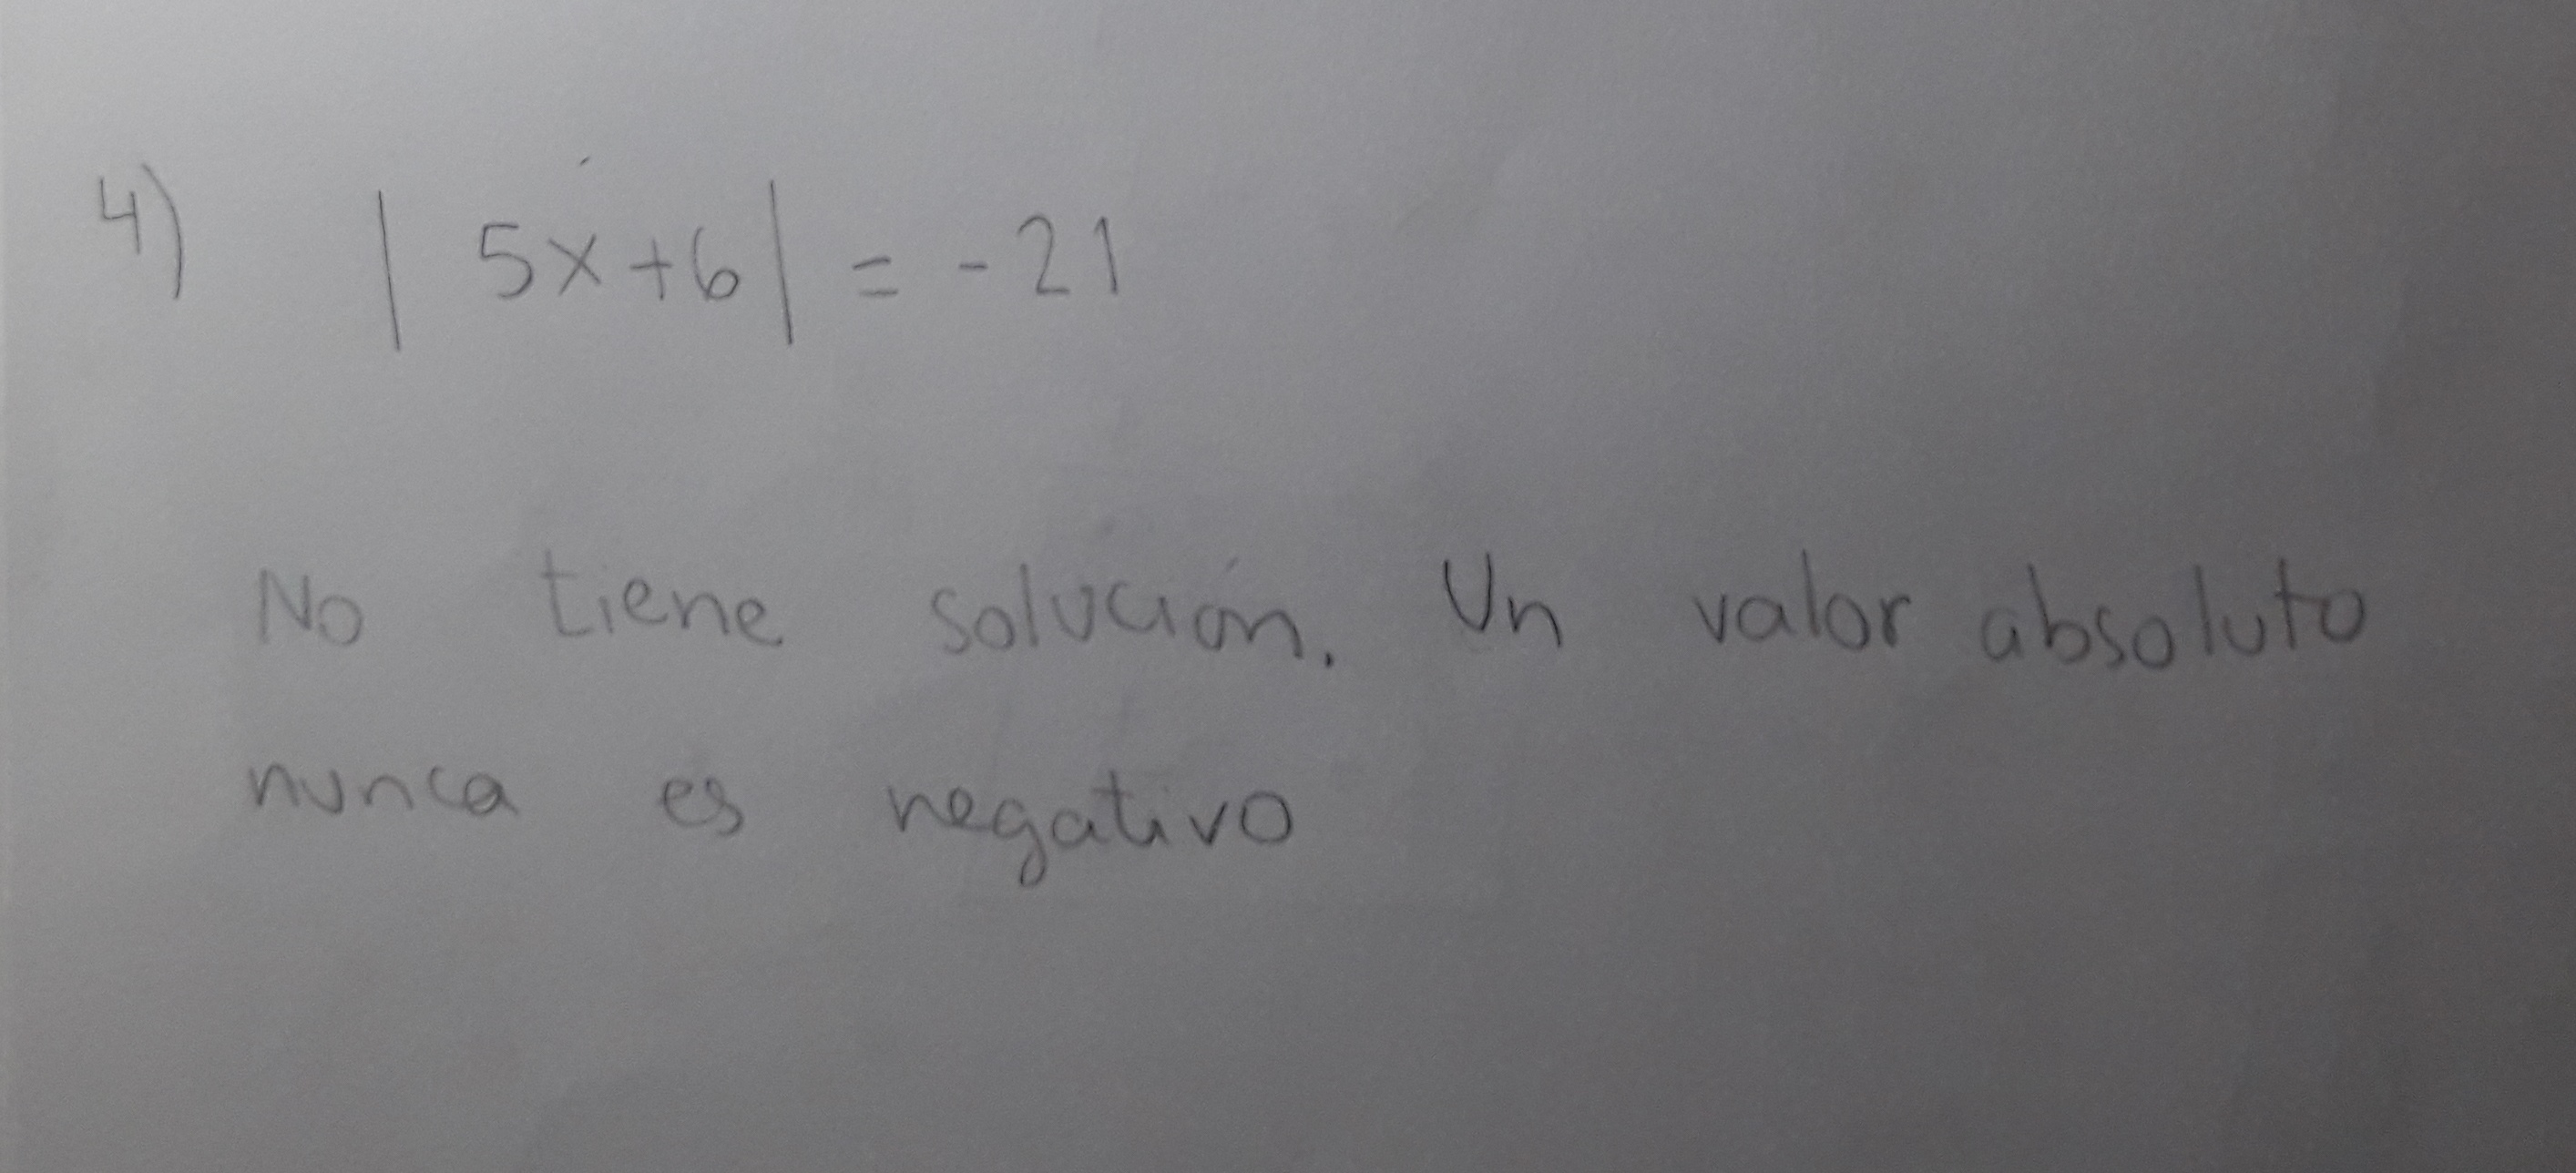 4) | 5x+6| = -21
No tiene solución. Un valor absoluto
nunca es negativo